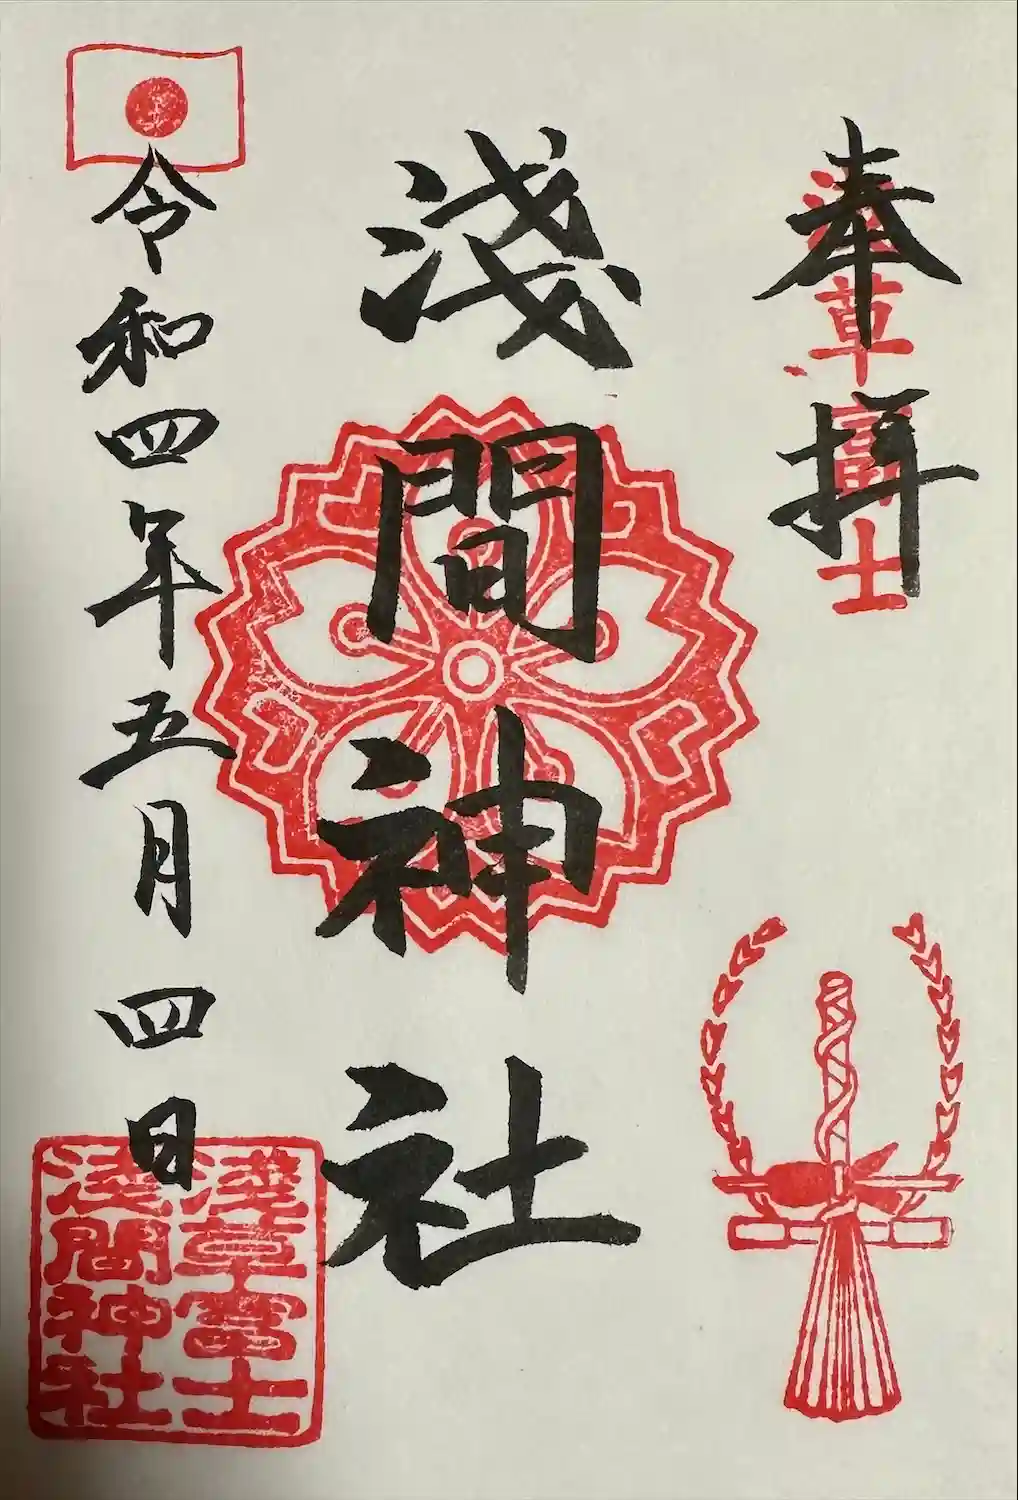 奉拝
淺草富士
淺間神社
令和四年五月四日
淺草富士
淺間神社